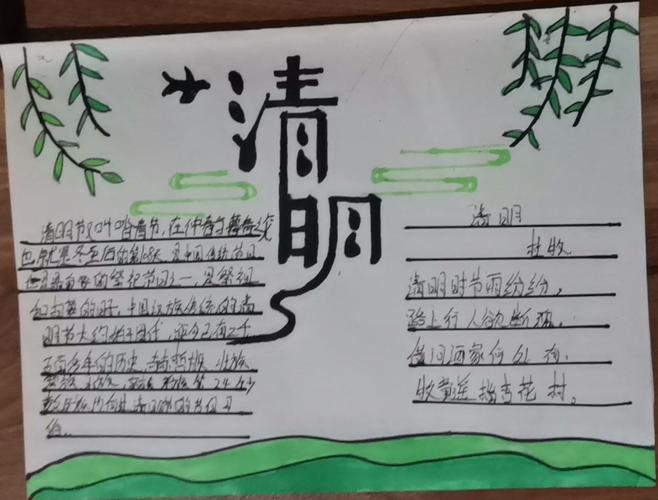 清明
清明节又叫踏青节，在仲春与暮春之交
也就是冬至后的第108天，是中国传统节日
也是最重要的祭祀节日之一，是祭祖
和扫墓的日子。中国汉族传统的清
明节大约始于周代，距今已有二千
五百多年的历史
24个少
清明
杜牧
清明时节雨纷纷，
路上行人欲断魂。
借问酒家何处有，
牧童遥指杏花村。